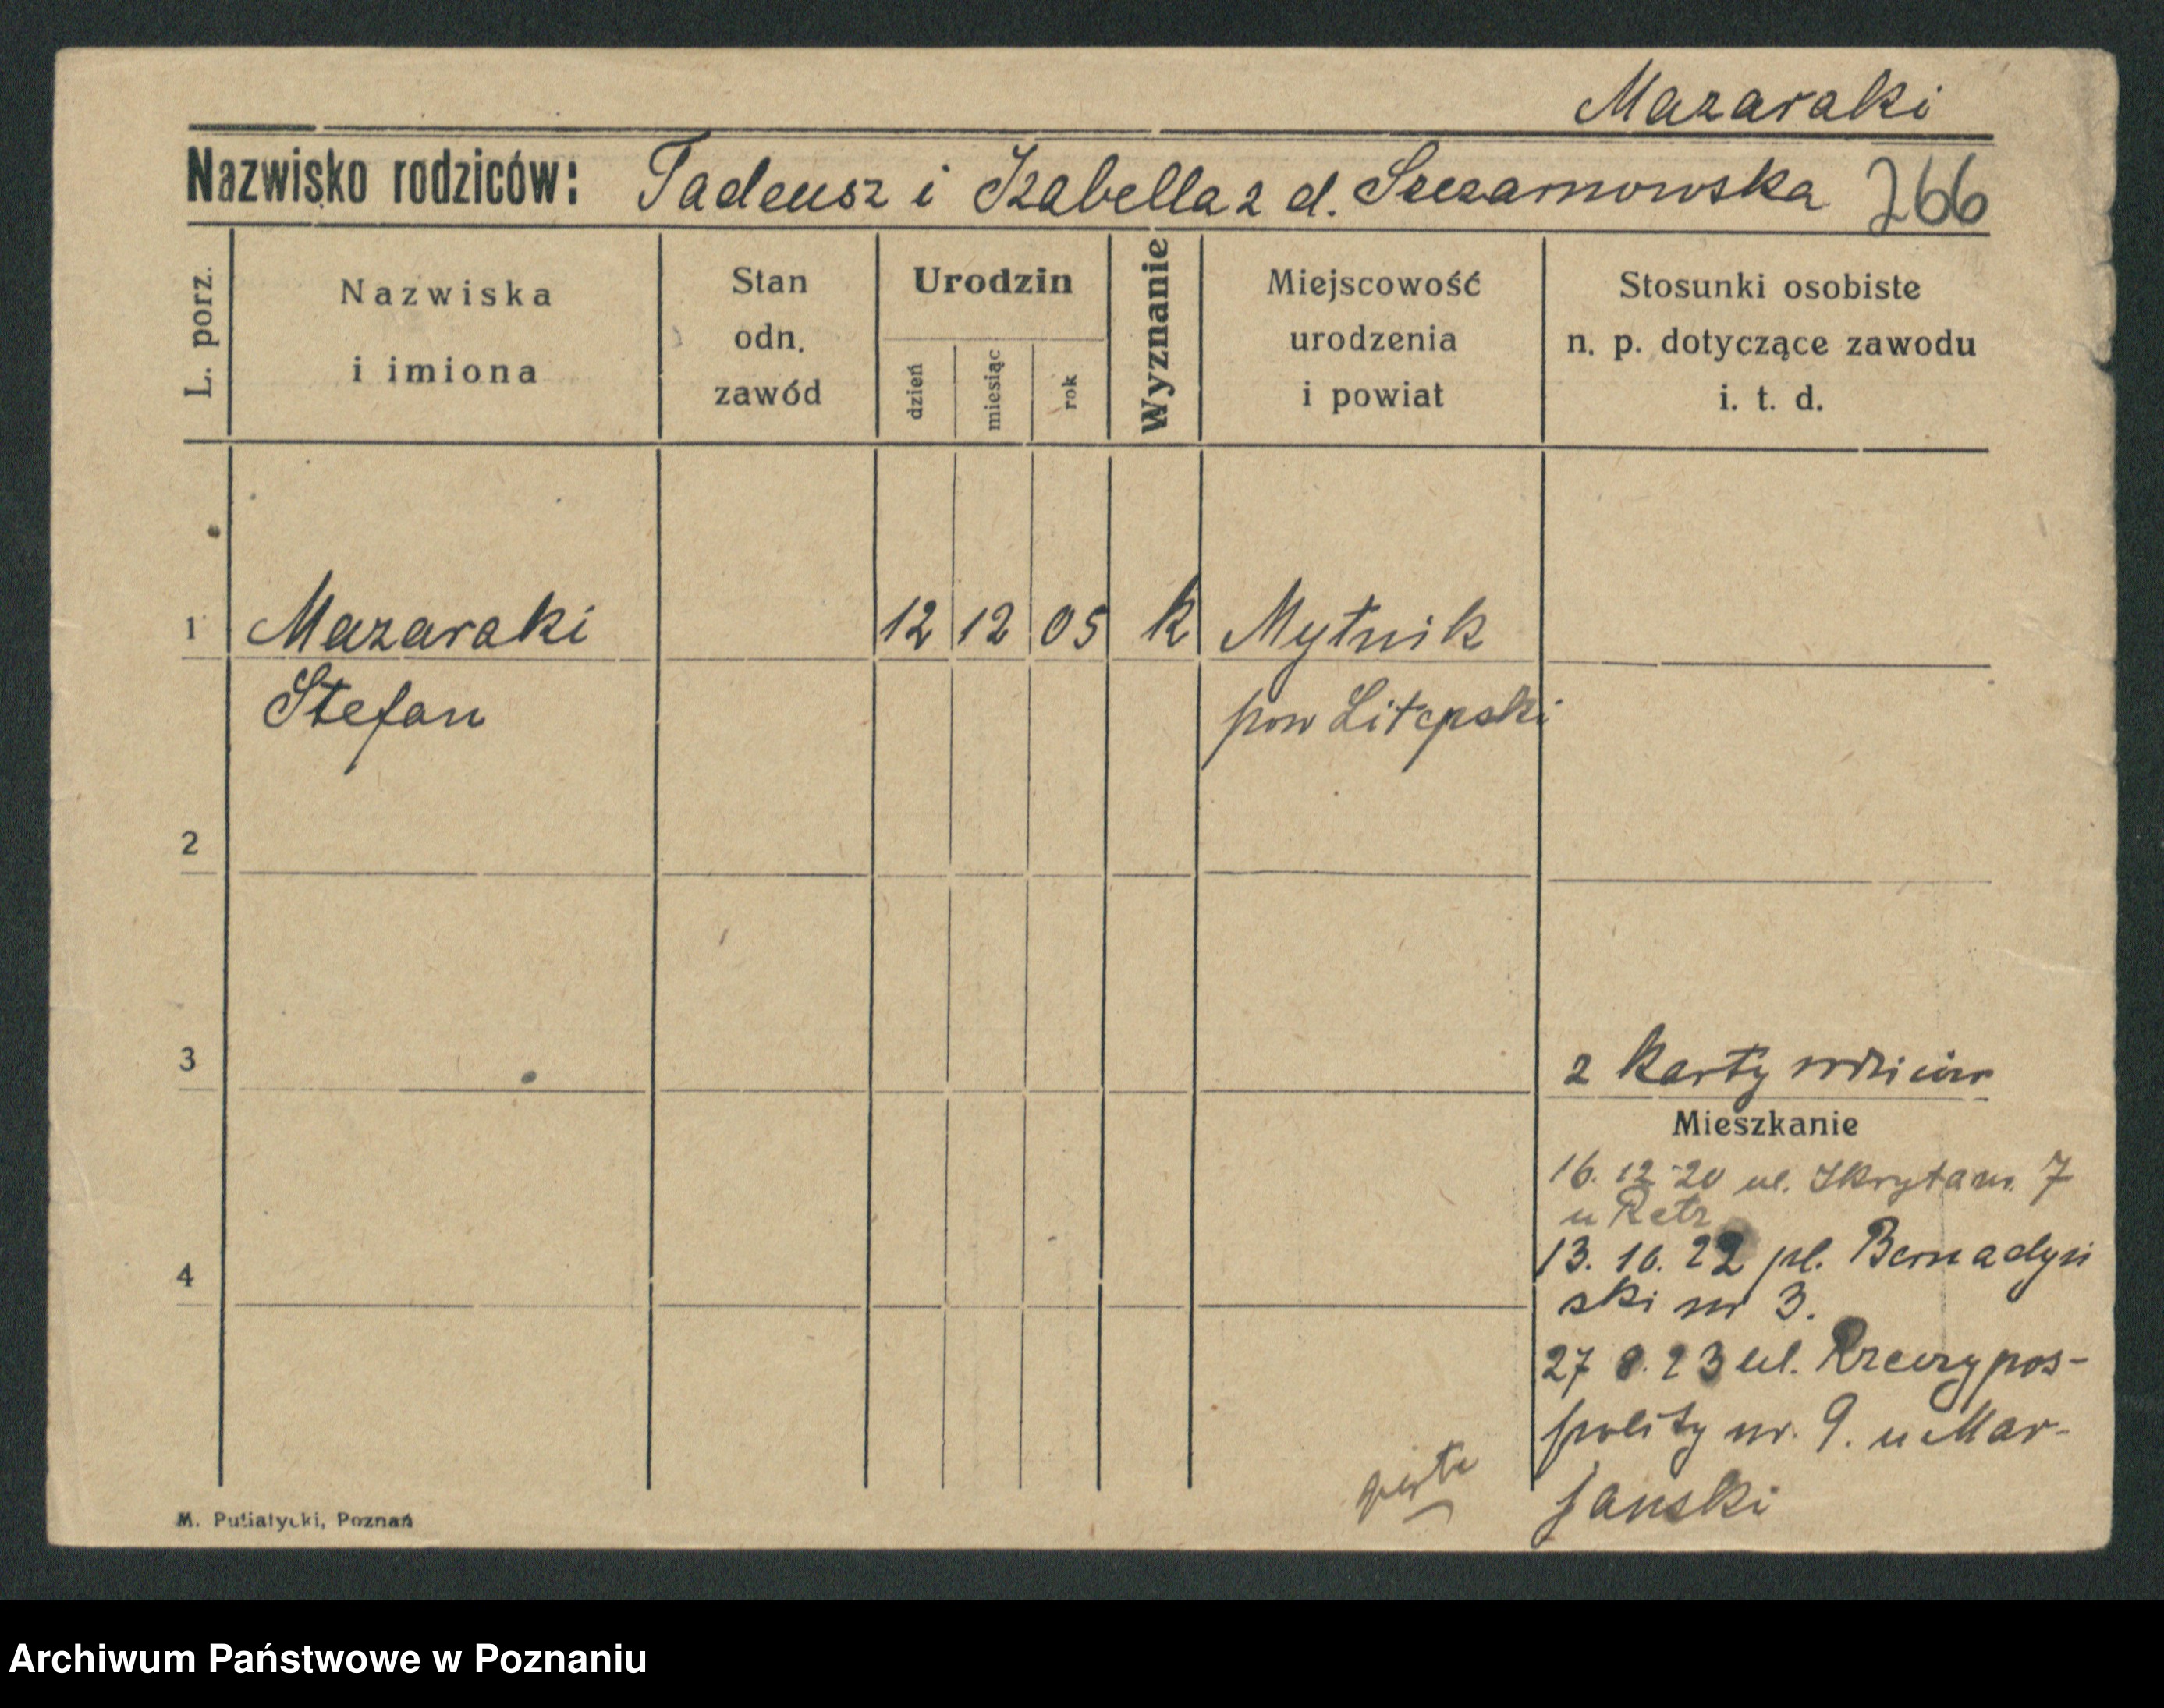 Mazaraki
Nazwisko rodziców: Tadeusz i Izabella z d. Szczamowska 266
L. porz.
Nazwiska
i imiona
Stan
odn.
zawód
Urodzin
dzień
miesiąc
rok
Wyznanie
Miejscowość
urodzenia
i powiat
Stosunki osobiste
n. p. dotyczące zawodu
i. t. d.
1 Mazaraki 12 12 05 k Mytnik
Stefan pow
2
3
z karty rodziców
Mieszkanie
16. 12 20 ul. 7
u Retz
4
13. 10. 22 pl. Bernadyń
ski nr 3.
27 8. 23 ul. Rzeczypos-
polity nr. 9. u Mar-
janski
M. Putiatycki, Poznań
Archiwum Państwowe w Poznaniu